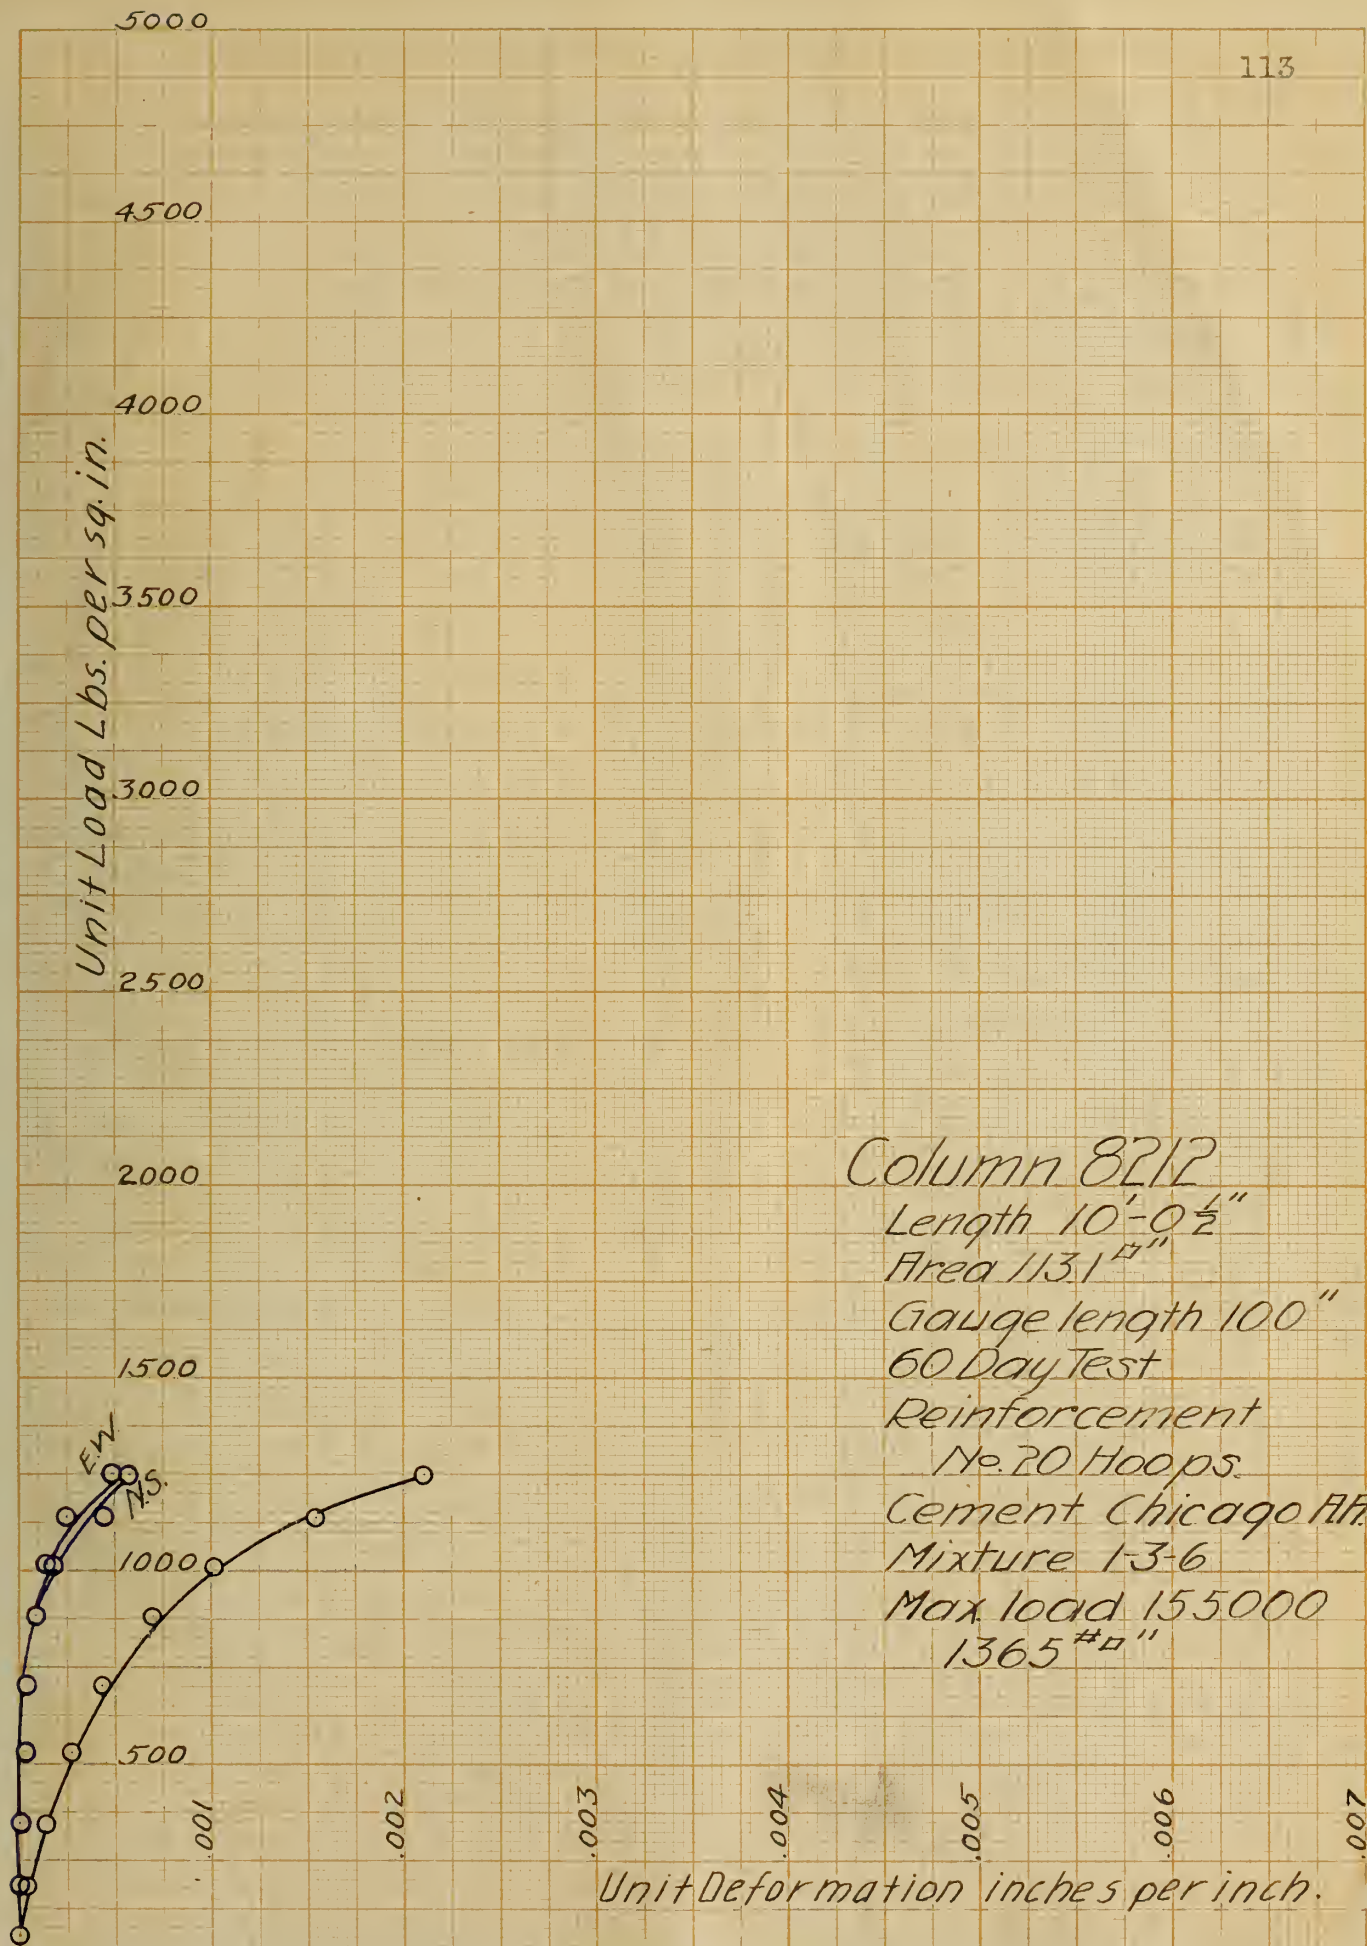 113
5000
4500
4000
3500
3000
2500
2000
1500
1000
500
Unit Load Lbs. per sq. in.
E.W.
N.S.
Column 8212
Length 10'-0 1/2"
Area 113.1 □"
Gauge length 100"
60 Day Test
Reinforcement
No. 20 Hoops.
Cement Chicago AA.
Mixture 1-3-6
Max. load 155000
1365 #□"
.001
.002
.003
.004
.005
.006
.007
Unit Deformation inches per inch.